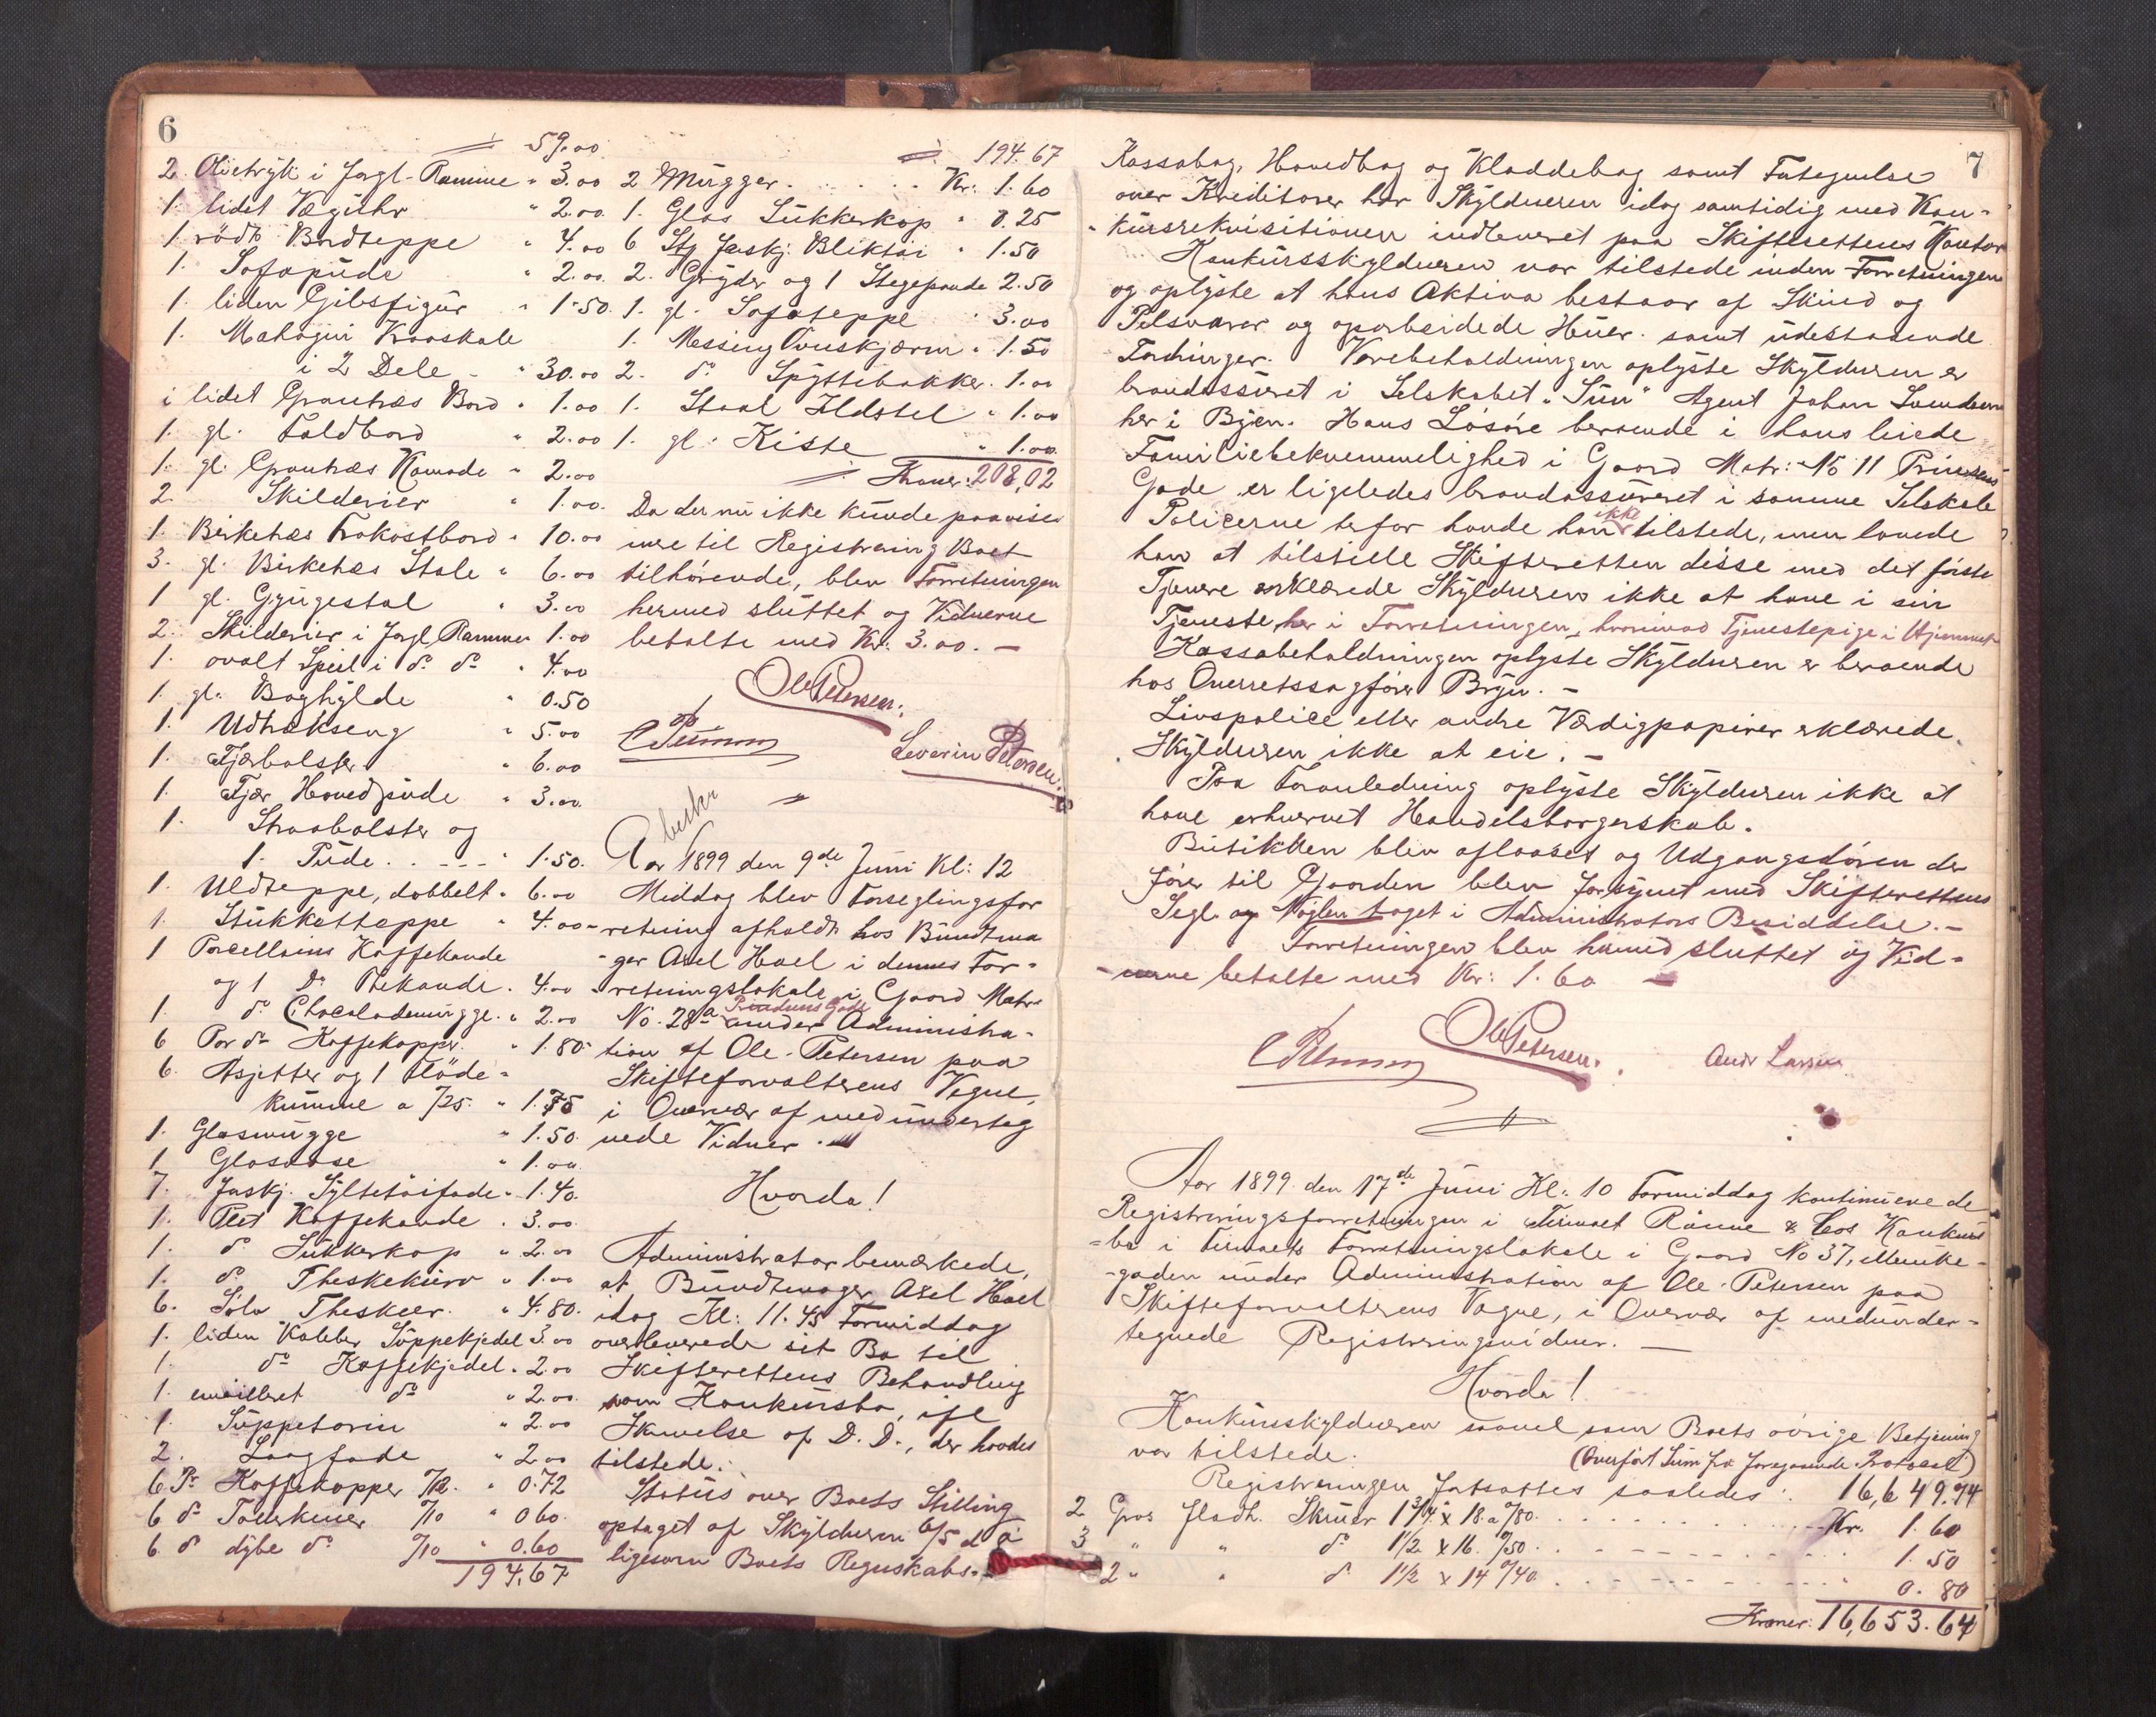 6
59.00
2. Olietryk i forgl. Ramme " 3.00
1. lidet Væguhr " 2.00
1 rödt Bordteppe " 4.00
1. Sofapude " 2.00
1. liden Gibsfigur " 1.50
1. Mahogni Kraaskale
i 2 Dele " 30.00
1 lidet Grantræs Bord " 1.00
1. gl. Foldbord " 2.00
1. gl. Grantræs Komode " 2.00
2. Skilderier " 1.00
1. Birketræs Frokostbord " 10.00
3. gl. Birketræs Stole " 6.00
1 gl. Gyngestol " 3.00
2. Skilderier i forgl. Rammer 1.00
1. ovalt Speil i do do " 4.00
1. gl. Boghylde " 0.50
1. Udtrækseng " 5.00
1. Fjærbolster " 6.00
1. Fjær Hovedpude " 3.00
1. Straabolster og
1. Pude " 1.50
1. Uldteppe, dobbelt " 6.00
1. Stukketteppe " 4.00
1 Porcellains Kaffekande
og 1 Do Thekande " 4.00
1. do Chocolademugge " 2.00
6 Par do Kaffekopper " 1.80
6. Asjetter og 1 Flöde-
kumme a /25 " 1.75
1. Glasmugge " 1.50
1 Glasvase " 1.00
7. forskj. Syltetöifade " 1.40
1. Plet Kaffekande " 3.00
1. do Sukkerkop " 2.00
1. do Theskekurv " 1.00
6. Sölv Theskeer " 4.80
1. liden Kobber Suppekjedel 3.00
1. do Kaffekjedel " 2.00
1. emailleret do " 2.00
1. Suppeterin " 2.00
2. Laagfade " 2.00
6 Pr Kaffekopper /12 " 0.72
6 do Tallerkener /10 " 0.60
6. do dybe do /10 " 0.60
194,67
194.67
2 Mugger Kr. 1.60
1. Glas Sukkerkop " 0.25
6 Stg forskj. Bliktöi " 1.50
2. Gryder og 1 Stegepande 2.50
1. gl. Sofateppe " 3.00
1. Messing Ovnskjærm " 1.50
2. do Spyttebakker 1.00
1. Staal Ildstel " 1.00
1. gl. Kiste " 1.00
Kroner: 208,02
Da der nu ikke kunde paavises
mere til Registrering Boet
tilhörende, blev Forretningen
hermed sluttet og Vidnerne
betalte med Kr. 3.00. —
Ole Petersen.
Severin Petersen.
Aar 1899 den 9de Juni Kl: 12
Middag blev Forseglingsfor
retning afholdt hos Bundtma
ger Axel Hoel i dennes For-
retningslokale i Gaard Matr
No. 28a Prindsens Gade under Administra-
tion af Ole Petersen paa
Skifteforvalterens Vegne,
i Overvær af medunderteg
nede Vidner.
Hvorda!
Administrator bemærkede,
at Bundtmager Axel Hoel
idag Kl: 11.45 Formiddag
overleverede sit Bo til
Skifterettens Behandling
som Konkursbo, ifl
Skrivelse af D. D., der havdes
tilstede.
Status over Boets Stilling
optaget af Skylduren 6/5 d A
ligesom Boets Regnskabs-
7
Kassabog, Hovedbog og Kladdebog samt Fortegnelse
over Kreditorer har Skyldneren idag samtidig med Kon-
kursrekvisitionen indleveret paa Skifterettens Kontor
Konkursskyldneren var tilstede inden Forretningen
og oplyste at hans Aktiva bestaar af Skind og
Pelsvarer og oparbeidede Huer. samt udestaaende
Fordringer. Varebeholdningen oplyste Skyldneren er
brandassureret i Selskabet "Sun" Agent Johan Lundem
her i Byen. Hans Lösöre beroende i hans leiede
Familiebekvemmelighed i Gaard Matr: No 11 Prinsens
Gade er ligeledes brandassureret i samme Selskab
Policerne herfor havde han ikke tilstede, men lovede
han at tilstille Skifteretten disse med det förste
Tjenere erklærede Skyldneren ikke at have i sin
Tjeneste her i Forretningen, hvorimod Tjenestepige i Hjemmet
Kassabeholdningen oplyste Skyldneren er beroende
hos Overretssagförer Bryn. —
Livspolice eller andre Værdigpapirer erklærede
Skyldneren ikke at eie. —
Paa Foranledning oplyste Skyldneren ikke at
have erhvervet Handelsborgerskab.
Butikken blev aflaaset og Udgangsdören der
förer til Gaarden blev forsynet med Skifterettens
Segl. og Nöglen taget i Administrators Besiddelse. —
Forretningen blev hermed sluttet og Vid-
nerne betalte med Kr: 1.60
Ole Petersen.
Andr Larsen
Aar 1899 den 17de Juni Kl: 10 Formiddag kontinuerede
Registreringsforretningen i Firmaet Rönne & Cos Konkurs
-bo i Firmaets Forretningslokale i Gaard No 37, Munke-
gaden under Administration af Ole Petersen paa
Skifteforvalterens Vegne, i Overvær af medunder-
tegnede Registreringsvidner. —
Hvorda!
Konkursskyldneren saavel som Boets övrige Betjening
var tilstede.
(Overfört Sum fra foregaaende Protocol)
Registreringen fortsattes saaledes: 16,649.74
2 Gros fladh. Skruer 1 3/4 x 18 a /80 Kr. 1.60
3 " " do 1 1/2 x 16. /50 1.50
2 " " do 1 1/2 x 14 /40 " 0.80
Kroner: 16,653.64